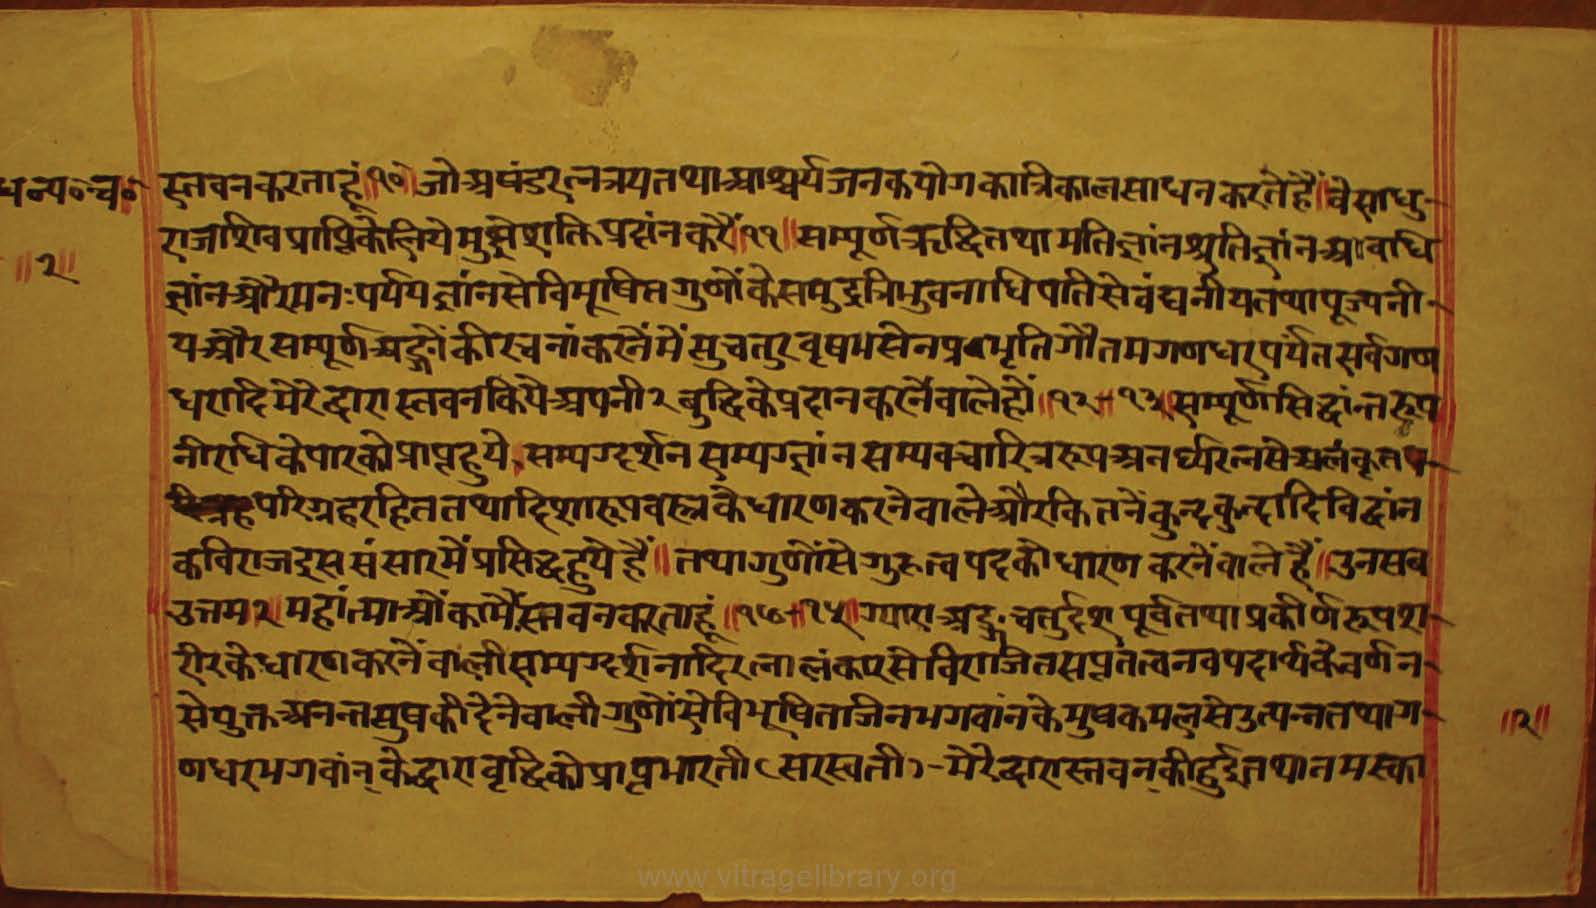 धन्य०च० स्तवन करता हूं॥१०॥ जो अषंड रत्नत्रय तथा आश्चर्य जनक योग का त्रिकाल साधन करते हैं॥ वे साधु-
राजा शिव प्राप्ति के लिये मुझे शक्ति प्रदांन करें॥११॥ सम्पूर्ण ऋद्धि तथा मतिज्ञांन श्रुतिज्ञांन अवधि
॥२॥
ज्ञांन और मनःपर्यय ज्ञांन से विभूषित गुणों के समुद्र त्रिभुवनाधिपति से वंद्यनीय तथा पूज्यनी-
य और सम्पूर्ण अङ्गों की रचनां करनें में सुचतुर वृषभसेन प्रभृति गौतम गणधर पर्यंत सर्व गण
धरादि मेरे द्वारा स्तवन किये अपनी २ बुद्धि के प्रदान करनें वाले हों॥१२-१३॥ सम्पूर्ण सिद्धांन्त रूप
नीरधि के पार को प्राप्त हुये सम्यग्दर्शन सम्यग्ज्ञांन सम्यक्चारित्र रूप अनर्घ्य रत्न से अलंकृत प-
परिग्रह रहित तथा दिशा रूप वस्त्र के धारण करने वाले और कितनें कुन्दकुन्दादि विद्वांन
कविराज इस संसार में प्रसिद्ध हुये हैं॥ तथा गुणों से गुरुत्व पद को धारण करनें वाले हैं॥ उन सब
उत्तम २ महांत्माओं का मैं स्तवन करता हूं॥१४-१५॥ ग्यारा अङ्ग चतुर्दश पूर्व तथा प्रकीर्ण रूप श-
रीर के धारण करनें वाली सम्यग्दर्शनादि रत्नालंकार से विराजित सप्त तत्व नव पदार्थ के वर्णन-
से युक्त अनन्त सुष की देने वाली गुणों से विभूषित जिन भगवांन के मुष कमल से उत्पन्न तथा ग-
॥२॥
णधर भगवांन् के द्वारा वृद्धि को प्राप्त भारती (सरस्वती)- मेरे द्वारा स्तवन की हुई तथा नमस्का
www.vitragelibrary.org